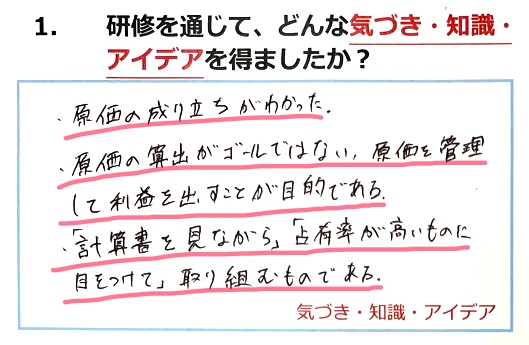 1. 研修を通じて、どんな気づき・知識・
アイデアを得ましたか？
・原価の成り立ちがわかった.
・原価の算出がゴールではない, 原価を管理
して利益を出すことが目的である.
・「計算書を見ながら」「占有率が高いものに
目をつけて」取り組むものである.
気づき・知識・アイデア